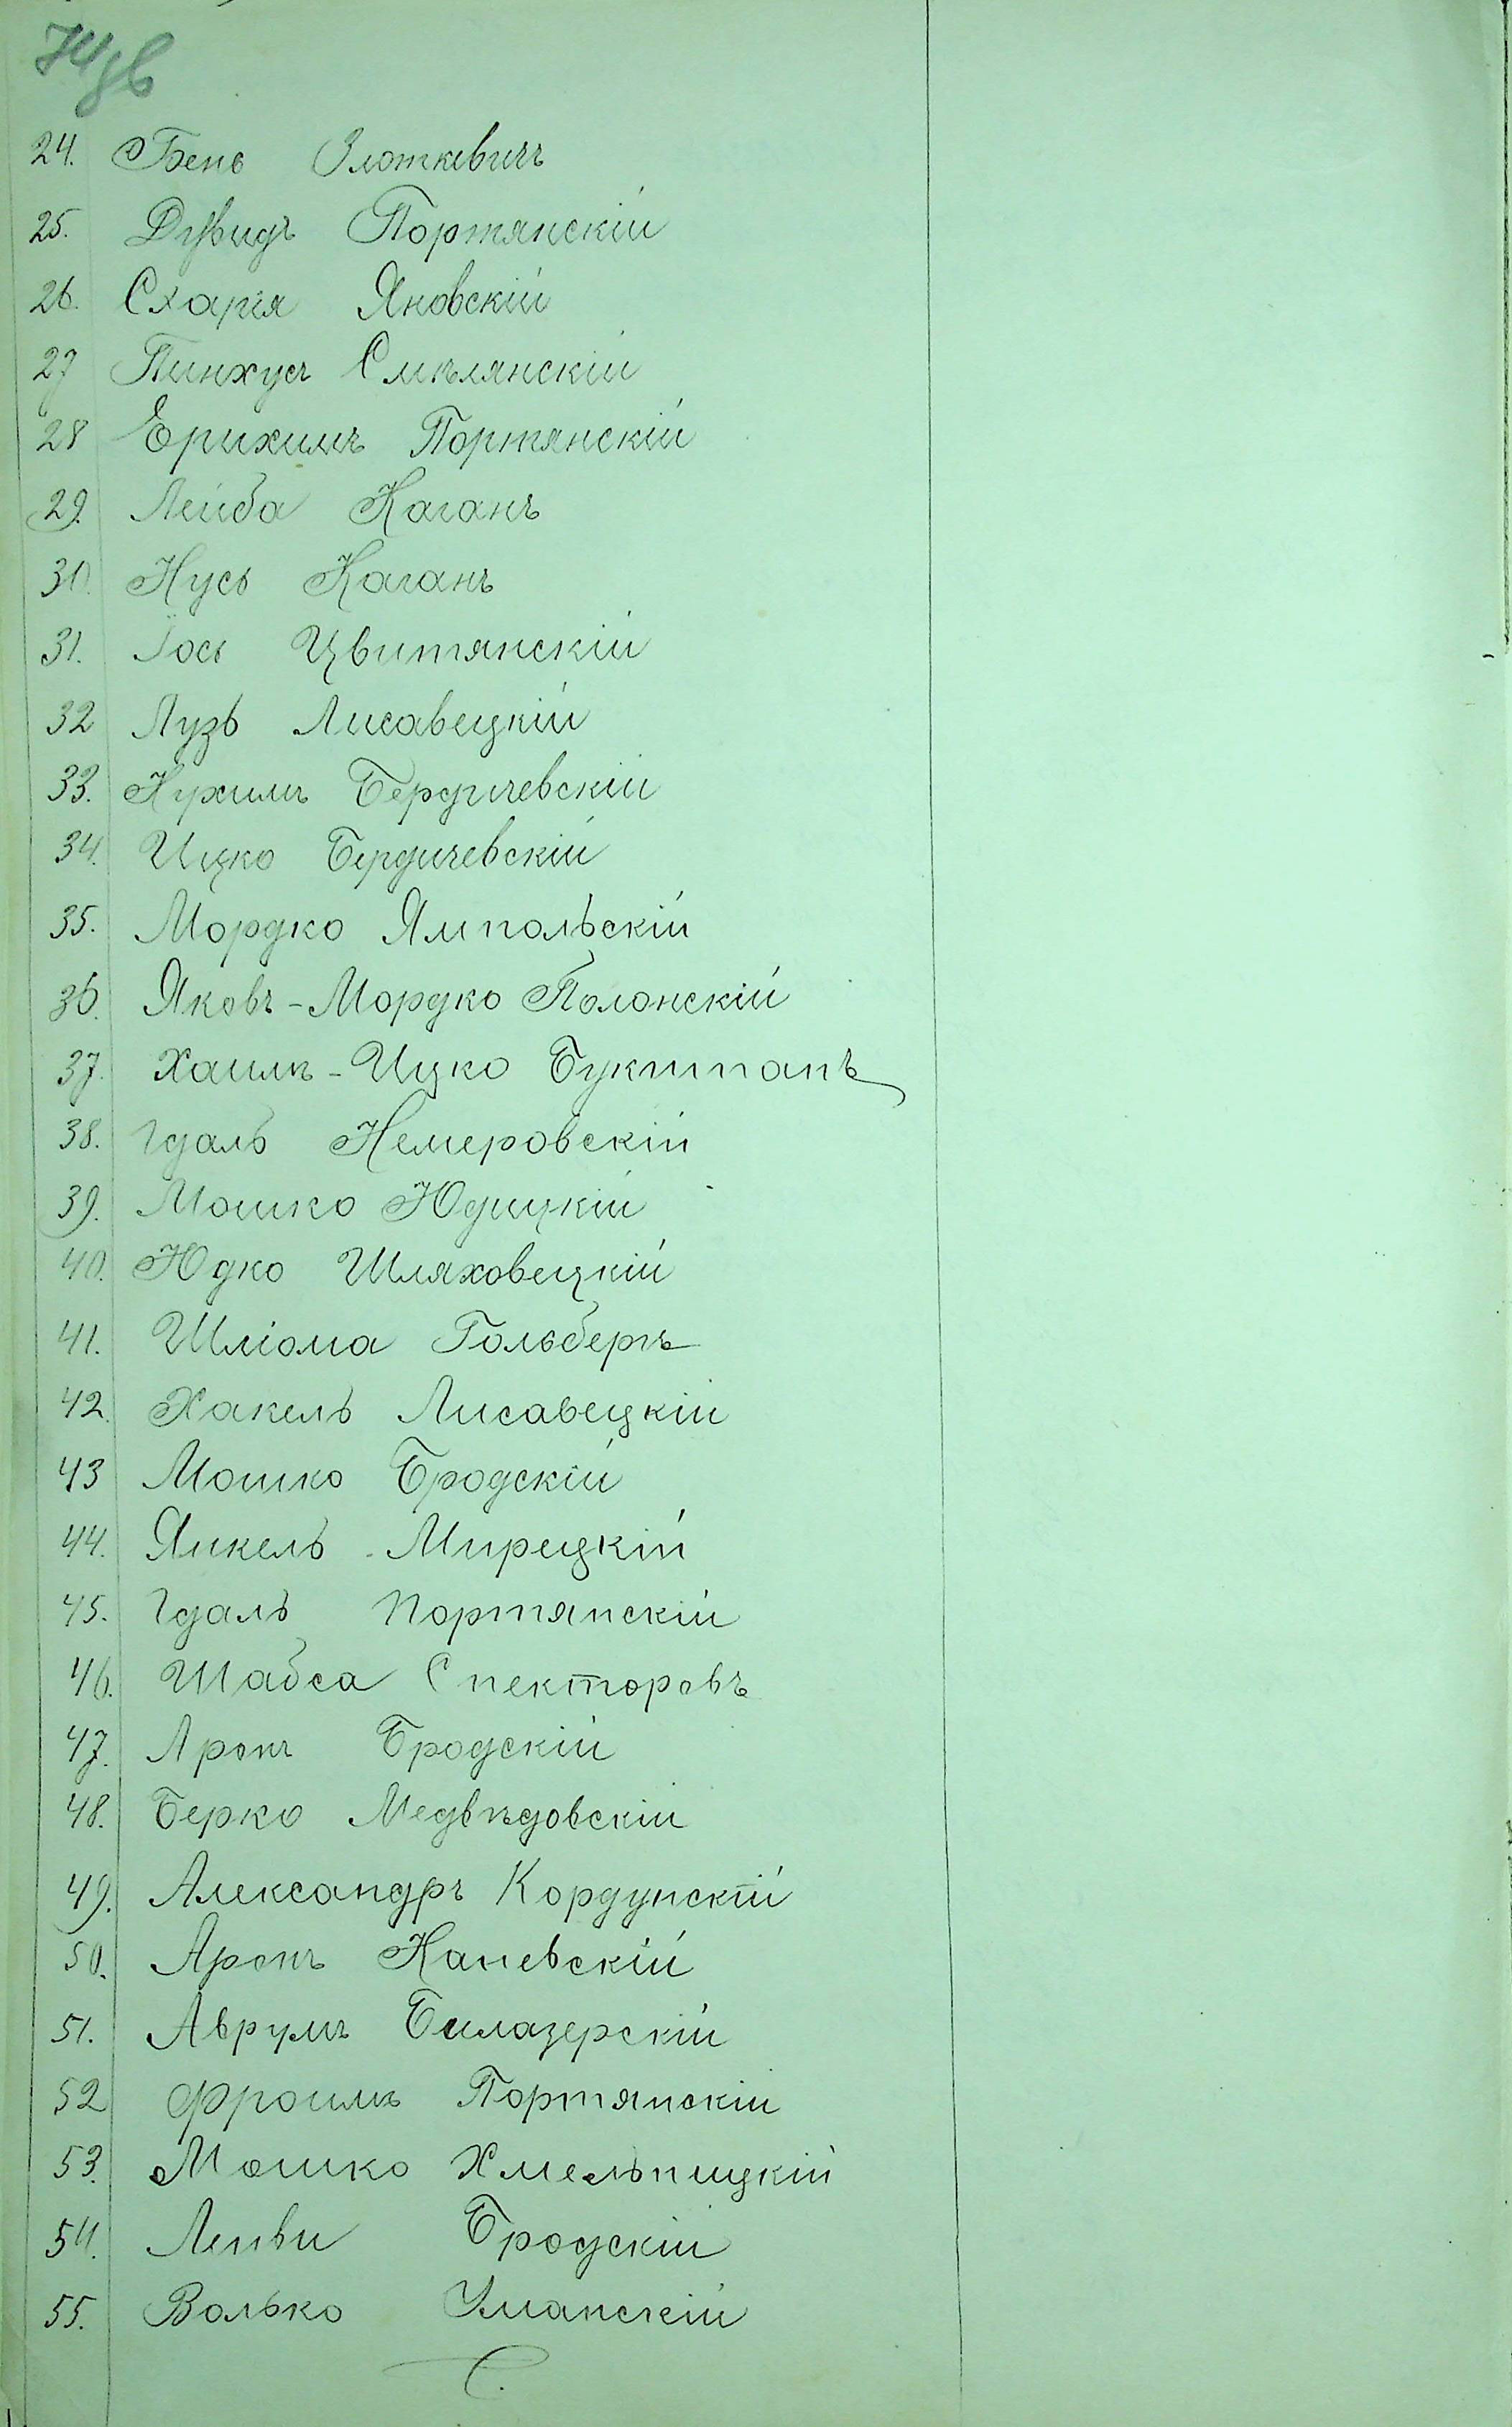 24. Бень Злоткевичъ
25. Дувидъ Портянскій
26. Схарія Яновскій
27 Пинхусъ Смѣлянскій
28 Ерихимъ Портянскій
29. Лейба Каганъ
30. Нусь Каганъ
31. Іось Цвитянскій
32 Лузь Лисавецкій
33. Нухимъ Бердичевскій
34. Ицко Бердичевскій
35. Мордко Ямпольскій
36. Яковъ-Мордко Полонскій
37. Хаимъ-Ицко Букштанъ
38. Гдаль Немеровскій
39. Мошко Юдицкій
40. Юдко Шляховецкій
41. Шліома Гольбергъ
42. Хакель Лисавецкій
43 Мошко Бродскій
44. Янкель Мирецкій
45. Гдаль Портянскій
46. Шабса Спекторовъ
47. Аронъ Бродскій
48. Берко Медвѣдовскій
49. Александръ Кордунскій
50. Аронъ Каневскій
51. Аврумъ Билазерскій
52 Фроимъ Портянскій
53. Мошко Хмельницкій
54. Лейви Бродскій
55. Волько Уманскій